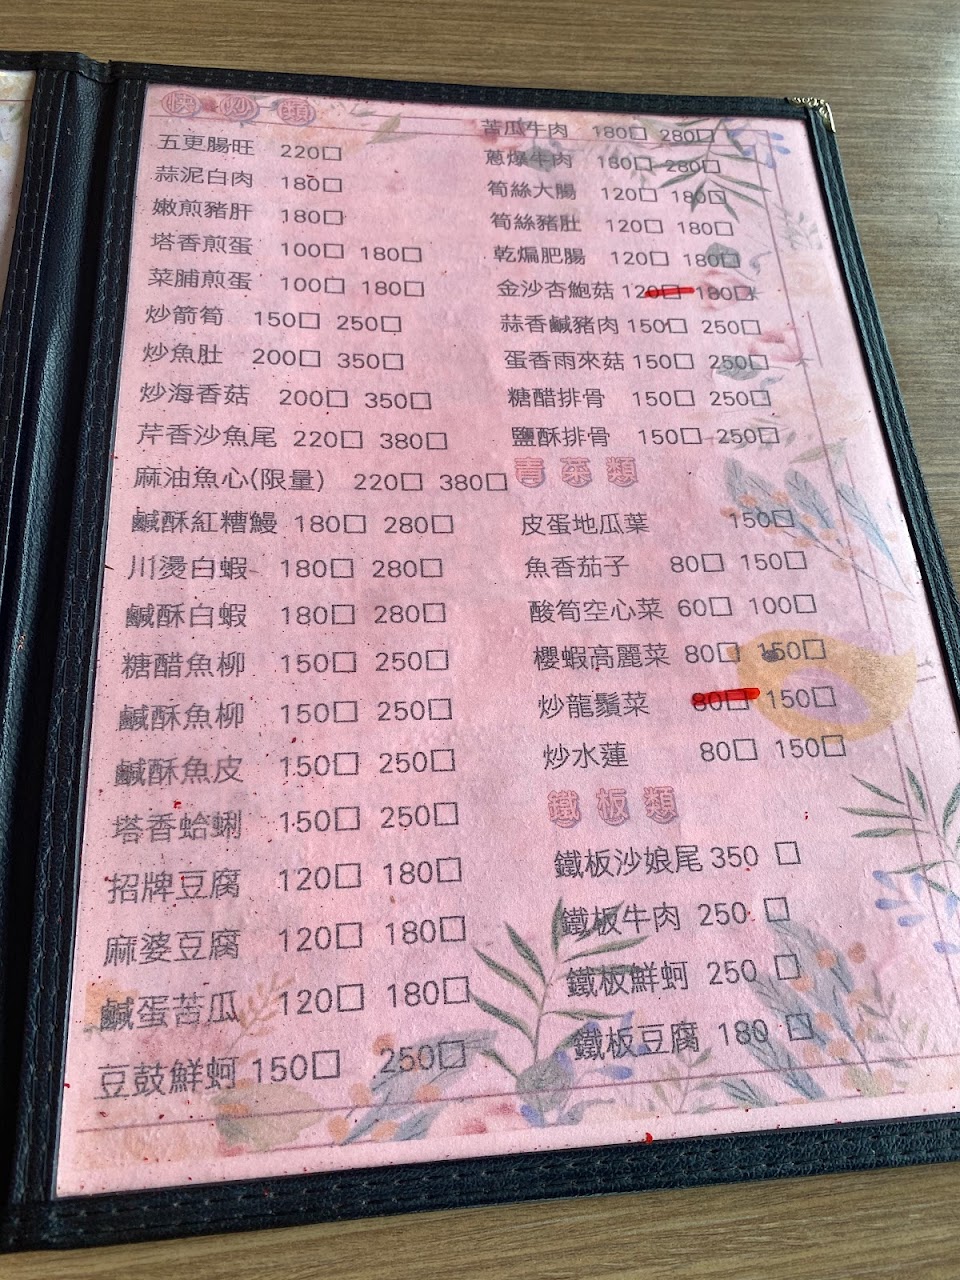 快炒類
五更腸旺 220□
蒜泥白肉 180□
嫩煎豬肝 180□
塔香煎蛋 100□ 180□
菜脯煎蛋 100□ 180□
炒箭筍 150□ 250□
炒魚肚 200□ 350□
炒海香菇 200□ 350□
芹香沙魚尾 220□ 380□
麻油魚心(限量) 220□ 380□
鹹酥紅糟鰻 180□ 280□
川燙白蝦 180□ 280□
鹹酥白蝦 180□ 280□
糖醋魚柳 150□ 250□
鹹酥魚柳 150□ 250□
鹹酥魚皮 150□ 250□
塔香蛤蜊 150□ 250□
招牌豆腐 120□ 180□
麻婆豆腐 120□ 180□
鹹蛋苦瓜 120□ 180□
豆鼓鮮蚵 150□ 250□
苦瓜牛肉 180□ 280□
蔥爆牛肉 180□ 280□
筍絲大腸 120□ 180□
筍絲豬肚 120□ 180□
乾煸肥腸 120□ 180□
金沙杏鮑菇 120□ 180□
蒜香鹹豬肉 150□ 250□
蛋香雨來菇 150□ 250□
糖醋排骨 150□ 250□
鹽酥排骨 150□ 250□
青菜類
皮蛋地瓜葉 150□
魚香茄子 80□ 150□
酸筍空心菜 60□ 100□
櫻蝦高麗菜 80□ 150□
炒龍鬚菜 80□ 150□
炒水蓮 80□ 150□
鐵板類
鐵板沙娘尾 350 □
鐵板牛肉 250 □
鐵板鮮蚵 250 □
鐵板豆腐 180 □